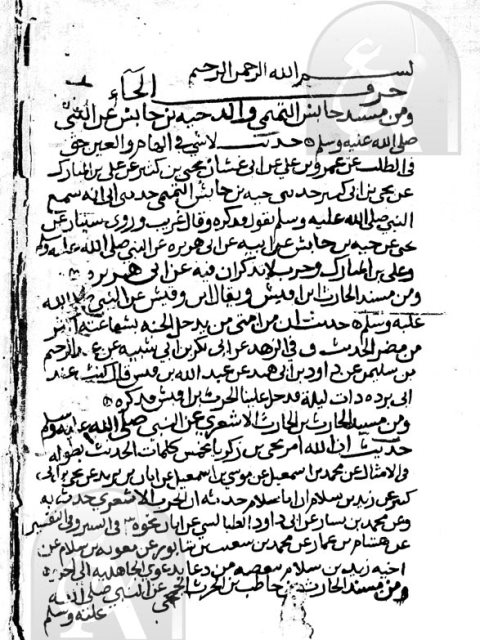 بسم الله الرحمن الرحيم
حرف الحاء
ومن مسند حابس التميمي والد حيه بن حابس عن النبي
صلى الله عليه وسلم حديث لا شي في الهام والعين حق
في الطب عن عمرو بن علي عن ابي غسان يحيى بن كثير عن علي بن المبارك
عن يحيى بن ابي كثير حدثني حيه بن حابس التميمي حدثني ابي انه سمع
النبي صلى الله عليه وسلم يقول فذكره وقال غريب وروى شيبان عن
يحيى عن حيه بن حابس عن ابيه عن ابي هريره عن النبي صلى الله عليه وسلم
وعلي بن المبارك وحرب لا يذكران فيه عن ابي هريره
ومن مسند الحارث ابن اقيش ويقال ابن وقيش عن النبي صلى الله
عليه وسلم حديث ان من امتي من يدخل الجنه بشفاعته اكثر
من مضر الحديث في الزهد عن ابي بكر بن ابي شيبه عن عبد الرحيم
بن سليمن عن داود بن ابي هند عن عبد الله بن قيس قال كنت عند
ابي برده ذات ليلة فدخل علينا الحرث بن اقيش فذكره
ومن مسند الحارث بن الحارث الاشعري عن النبي صلى الله عليه وسلم
حديث ان الله امر يحيى بن زكريا بخمس كلمات الحديث بطوله
في الامثال عن محمد بن اسمعيل عن موسى بن اسمعيل عن ابان بن يزيد عن يحيى بن ابي
كثير عن زيد بن سلام ان ابا سلام حدثه ان الحرث الاشعري حدثه به
وعن محمد بن بشار عن ابي داود الطيالسي عن ابان نحوه في السير وفي التفسير
عن هشام بن عمار عن محمد بن شعيب بن شابور عن معويه بن سلام عن
اخيه زيد بن سلام ببعضه من دعا بدعوى الجاهليه الى اخره
ومن مسند الحارث بن حاطب بن الحرث الجمحي عن النبي صلى الله
عليه وسلم